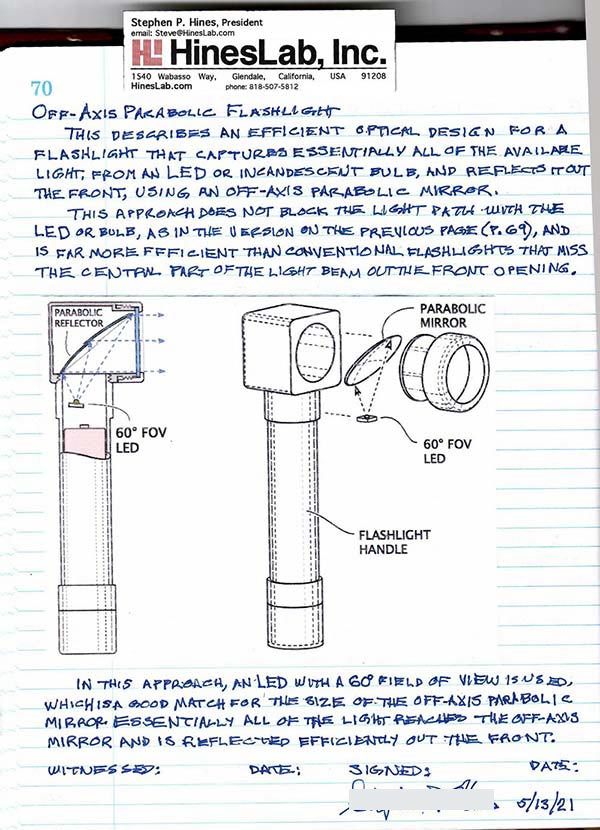 Stephen P. Hines, President
email: Steve@HinesLab.com
HL HinesLab, Inc.
1540 Wabasso Way, Glendale, California, USA 91208
HinesLab.com phone: 818-507-5812
70
OFF-AXIS PARABOLIC FLASHLIGHT
THIS DESCRIBES AN EFFICIENT OPTICAL DESIGN FOR A
FLASHLIGHT THAT CAPTURES ESSENTIALLY ALL OF THE AVAILABLE
LIGHT, FROM AN LED OR INCANDESCENT BULB, AND REFLECTS IT OUT
THE FRONT, USING AN OFF-AXIS PARABOLIC MIRROR.
THIS APPROACH DOES NOT BLOCK THE LIGHT PATH WITH THE
LED OR BULB, AS IN THE VERSION ON THE PREVIOUS PAGE (P. 69), AND
IS FAR MORE EFFICIENT THAN CONVENTIONAL FLASHLIGHTS THAT MISS
THE CENTRAL PART OF THE LIGHT BEAM OUT THE FRONT OPENING.
PARABOLIC
REFLECTOR
60° FOV
LED
PARABOLIC
MIRROR
60° FOV
LED
FLASHLIGHT
HANDLE
IN THIS APPROACH, AN LED WITH A 60° FIELD OF VIEW IS USED,
WHICH IS A GOOD MATCH FOR THE SIZE OF THE OFF-AXIS PARABOLIC
MIRROR. ESSENTIALLY ALL OF THE LIGHT REACHES THE OFF-AXIS
MIRROR AND IS REFLECTED EFFICIENTLY OUT THE FRONT.
WITNESSED: DATE: SIGNED: DATE:
5/13/21